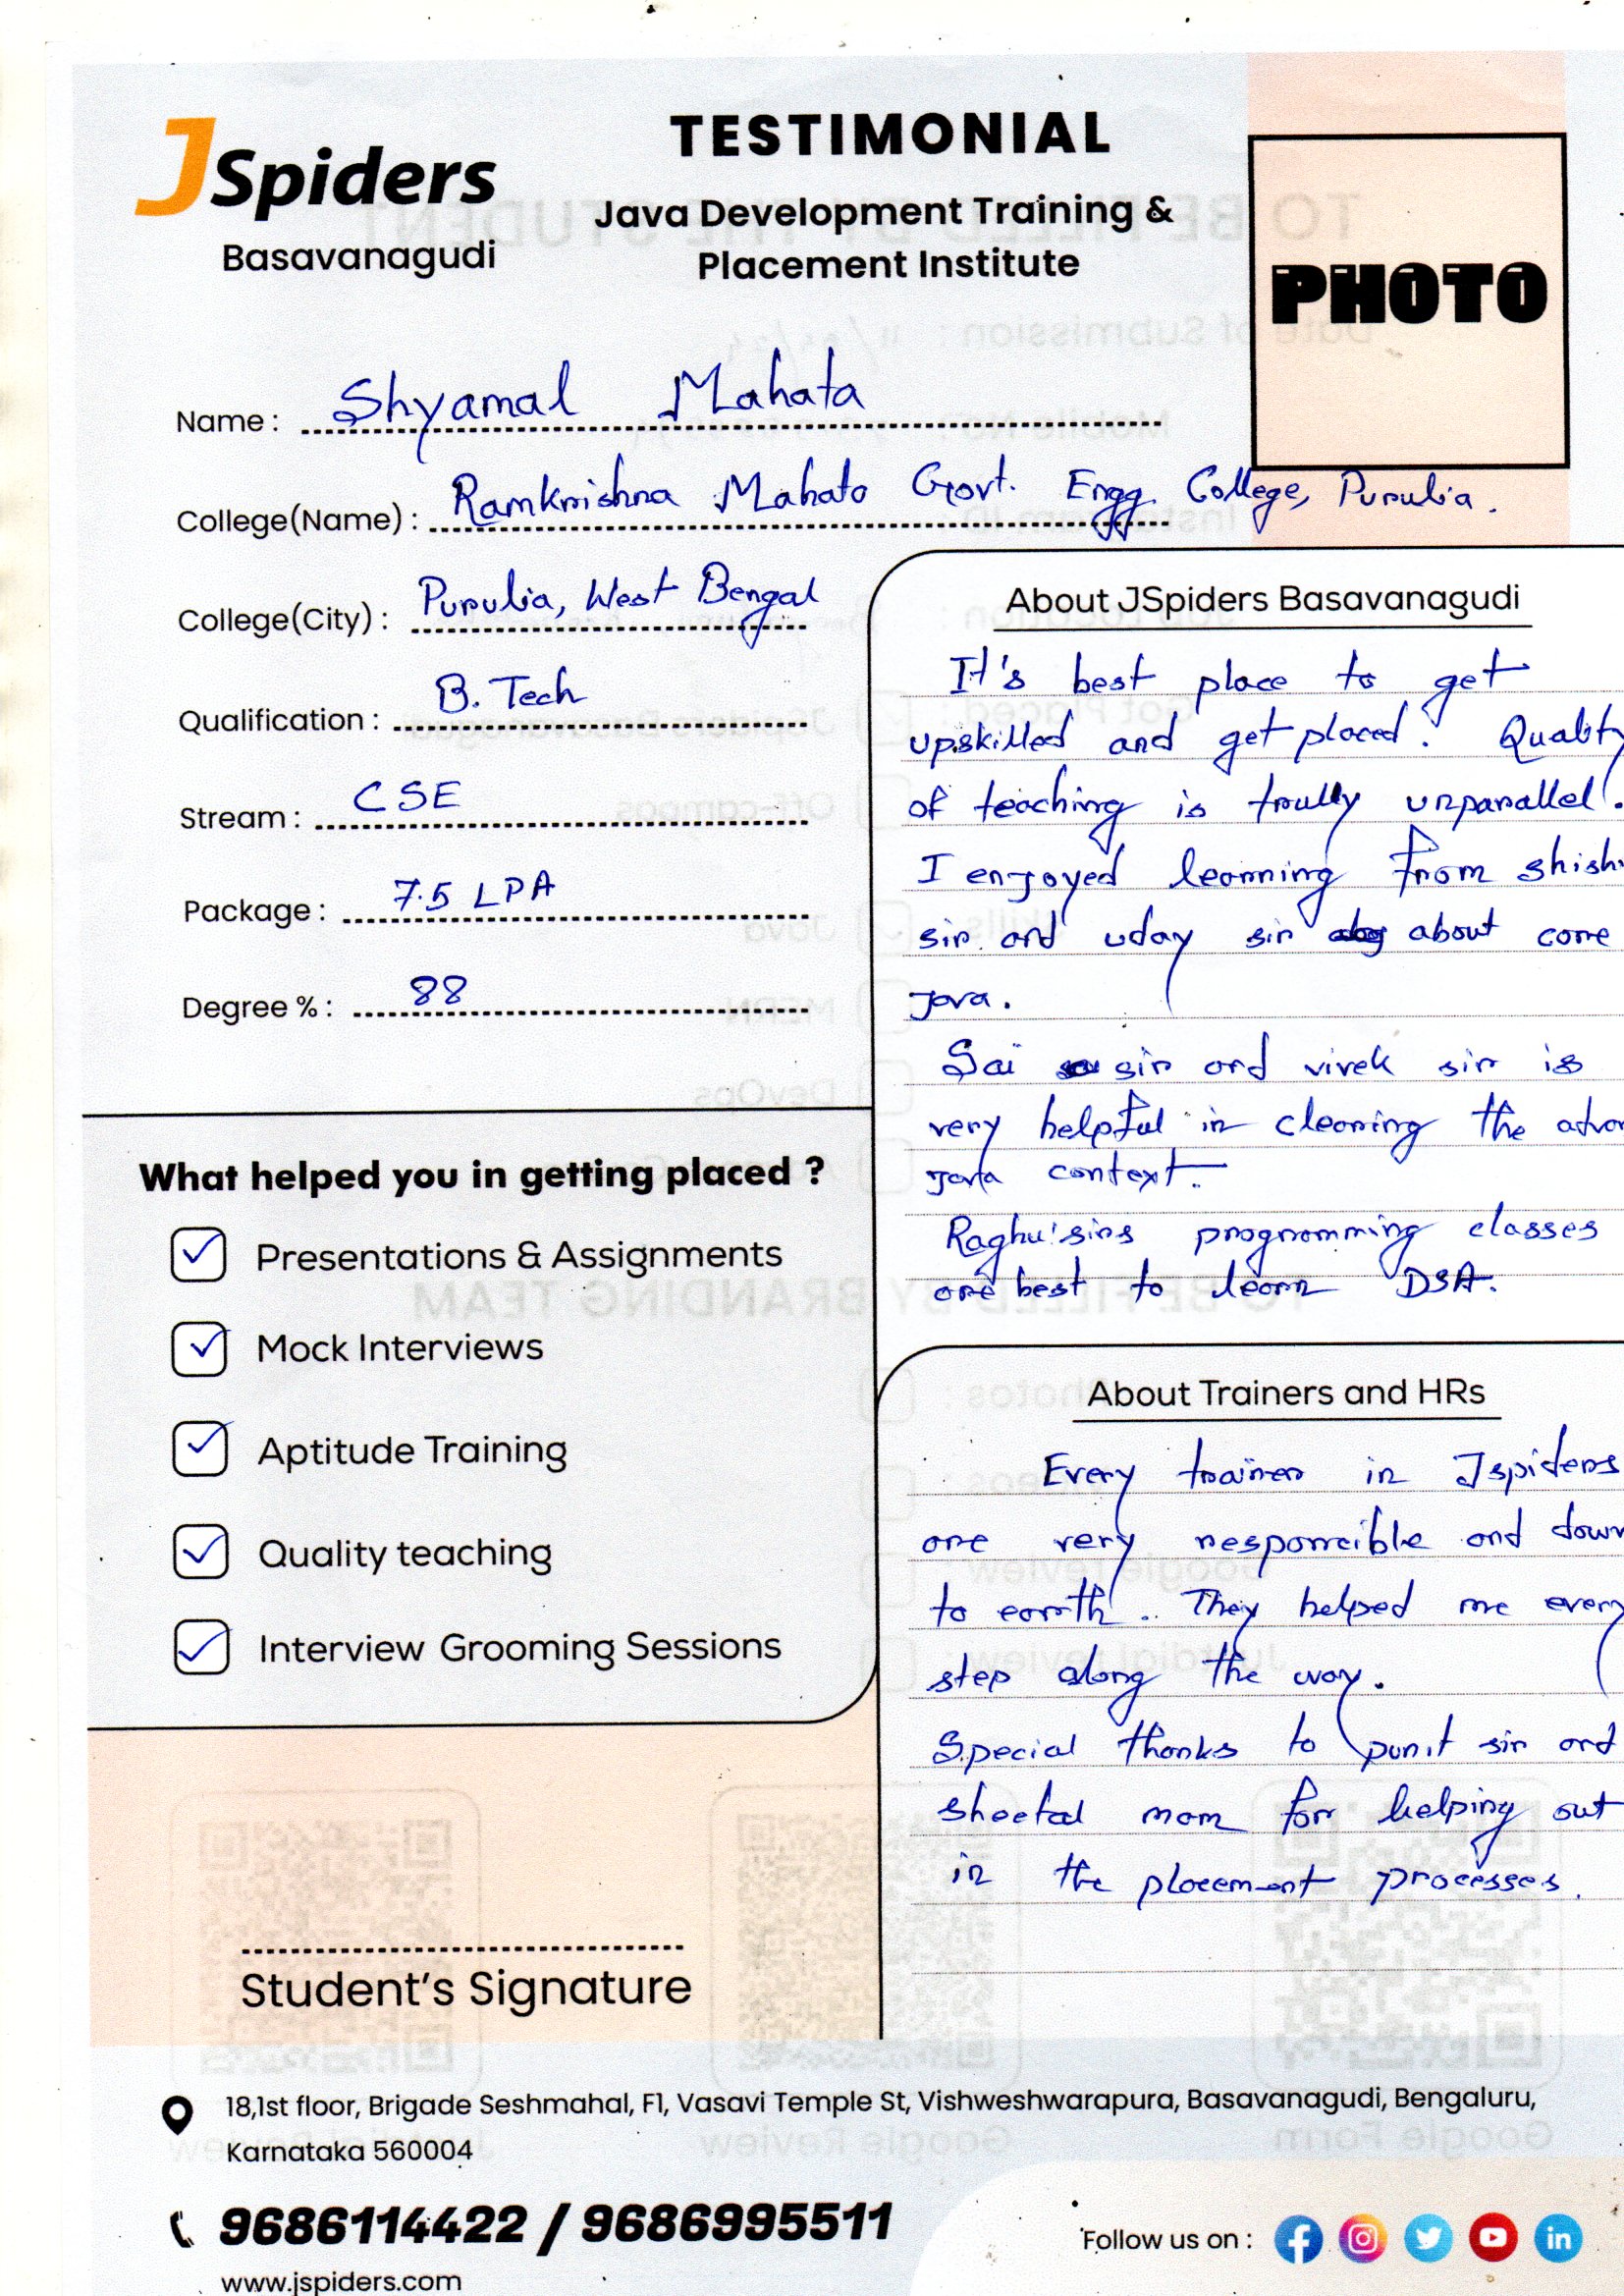 JSpiders
Basavanagudi
TESTIMONIAL
Java Development Training &
Placement Institute
PHOTO
Name : Shyamal Mahata
College(Name) : Ramkrishna Mahato Govt. Engg. College, Purulia.
College(City) : Purulia, West Bengal
Qualification : B. Tech
Stream : CSE
Package : 7.5 LPA
Degree % : 88
What helped you in getting placed ?
Presentations & Assignments
Mock Interviews
Aptitude Training
Quality teaching
Interview Grooming Sessions
Student's Signature
About JSpiders Basavanagudi
It's best place to get
upskilled and get placed. Quality
of teaching is trully unparallel.
I enjoyed learning from shish
sir and uday sir about core
Java.
Sai sir and vivek sir is
very helpful in clearing the advan
Java context.
Raghu sirs programming classes
are best to learn DSA.
About Trainers and HRs
Every trainer in Jspiders
are very responcible and down
to earth. They helped me every
step along the way.
Special thanks to punit sir and
sheetal mam for helping out
in the placement processes.
18,1st floor, Brigade Seshmahal, F1, Vasavi Temple St, Vishweshwarapura, Basavanagudi, Bengaluru,
Karnataka 560004
9686114422 / 9686995511
www.jspiders.com
Follow us on :